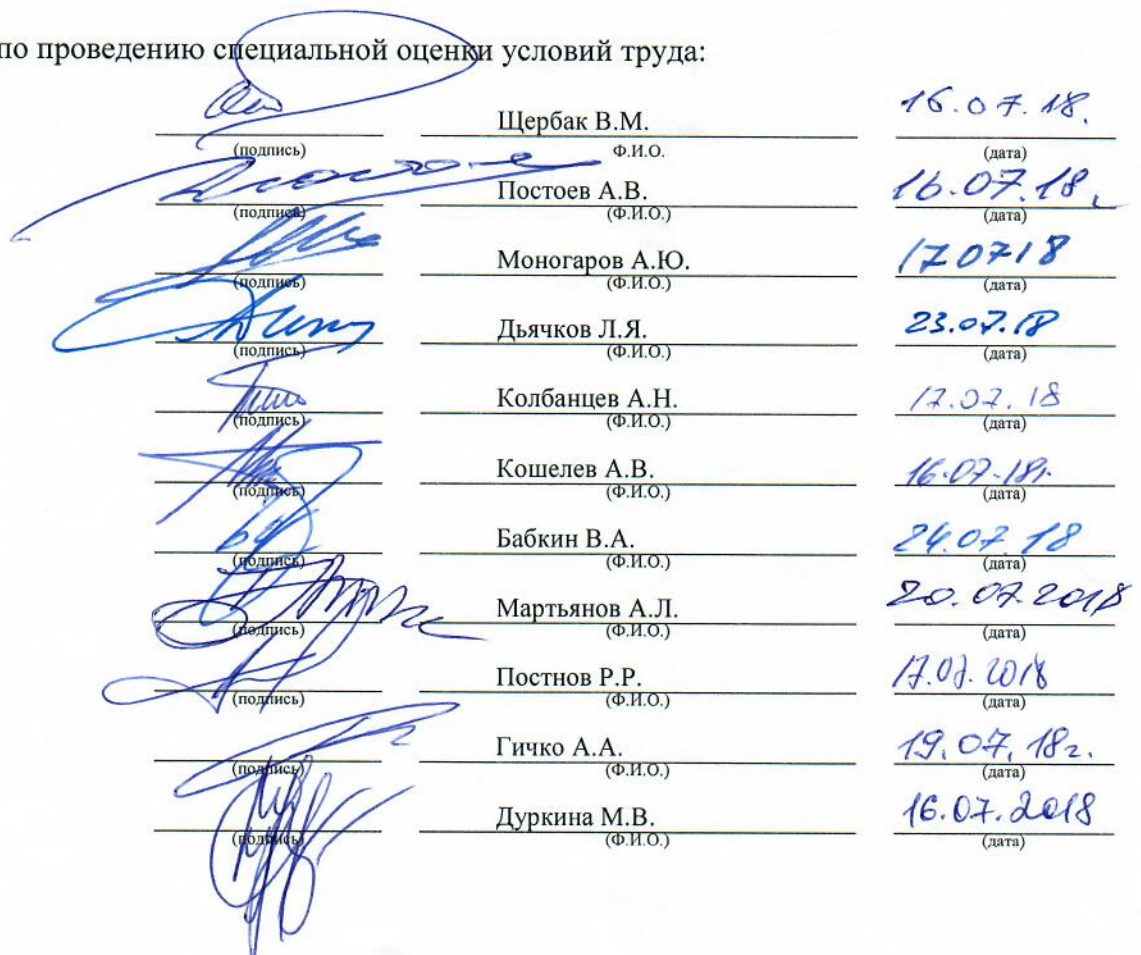 по проведению специальной оценки условий труда:
Щербак В.М. 16.07.18.
(подпись) Ф.И.О. (дата)
Постоев А.В. 16.07.18.
(подпись) (Ф.И.О.) (дата)
Моногаров А.Ю. 170718
(подпись) (Ф.И.О.) (дата)
Дьячков Л.Я. 23.07.18
(подпись) (Ф.И.О.) (дата)
Колбанцев А.Н. 17.07.18
(подпись) (Ф.И.О.) (дата)
Кошелев А.В. 16.07.18г.
(подпись) (Ф.И.О.) (дата)
Бабкин В.А. 24.07.18
(подпись) (Ф.И.О.) (дата)
Мартьянов А.Л. 20.07.2018
(подпись) (Ф.И.О.) (дата)
Постнов Р.Р. 17.07.2018
(подпись) (Ф.И.О.) (дата)
Гичко А.А. 19.07.18г.
(подпись) (Ф.И.О.) (дата)
Дуркина М.В. 16.07.2018
(подпись) (Ф.И.О.) (дата)